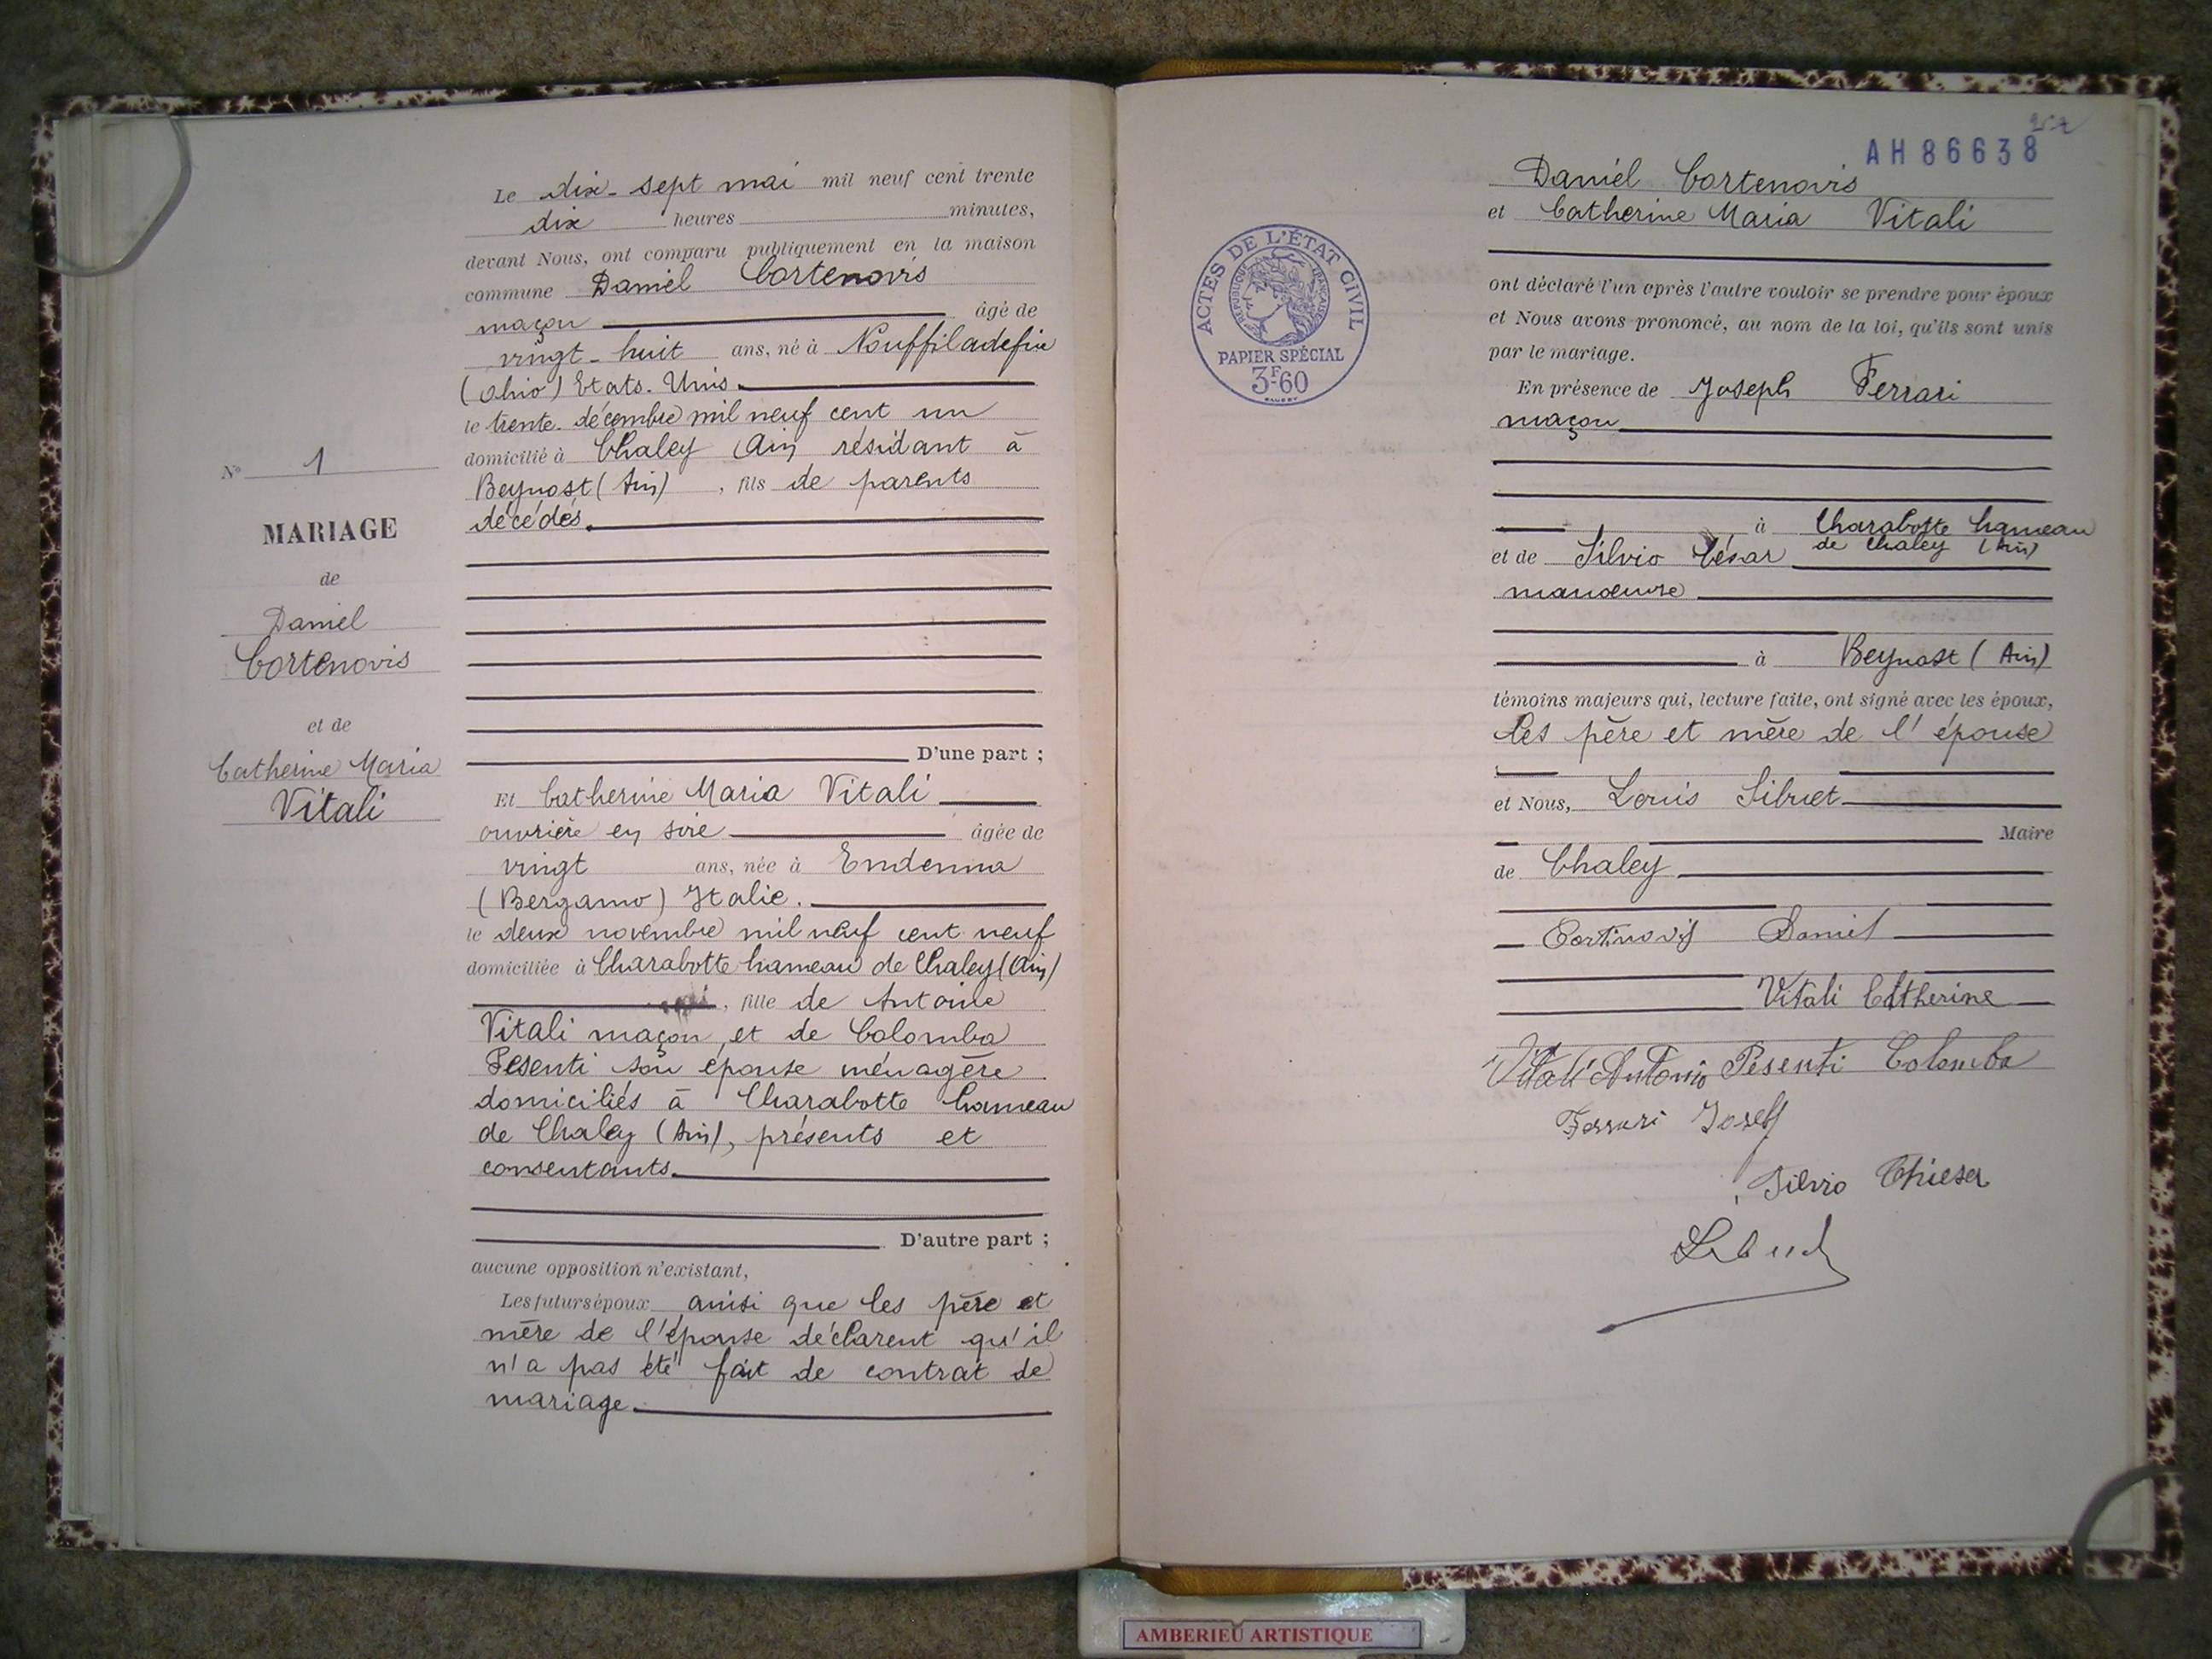 Nº 1
MARIAGE
de
Daniel
Cortenovis
et de
Catherine Maria
Vitali
Le dix-sept mai mil neuf cent trente
dix heures minutes,
devant Nous, ont comparu publiquement en la maison
commune Daniel Cortenovis
maçon âgé de
vingt-huit ans, né à Nouffiladefie
(Ohio) Etats-Unis
le trente décembre mil neuf cent un
domicilié à Chaley (Ain) résidant à
Beynost (Ain), fils de parents
décédés.
D'une part ;
Et Catherine Maria Vitali
ouvrière en soie âgée de
vingt ans, née à Endenna
(Bergamo) Italie.
le deux novembre mil neuf cent neuf
domiciliée à Charabotte hameau de Chaley (Ain)
, fille de Antoine
Vitali maçon, et de Colomba
Pesenti son épouse ménagère
domiciliés à Charabotte hameau
de Chaley (Ain), présents et
consentants.
D'autre part ;
aucune opposition n'existant,
Les futurs époux ainsi que les père et
mère de l'épouse déclarent qu'il
n'a pas été fait de contrat de
mariage.
AH86638
Daniel Cortenovis
et Catherine Maria Vitali
ACTES DE L'ÉTAT CIVIL
RÉPUBLIQUE FRANÇAISE
PAPIER SPÉCIAL
3F60
ont déclaré l'un après l'autre vouloir se prendre pour époux
et Nous avons prononcé, au nom de la loi, qu'ils sont unis
par le mariage.
En présence de Joseph Ferrari
maçon
à Charabotte hameau
de Chaley (Ain)
et de Silvio César
manoeuvre
à Beynost (Ain)
témoins majeurs qui, lecture faite, ont signé avec les époux,
les père et mère de l'épouse
et Nous, Louis Sibuet
Maire
de Chaley
Cortinovis Daniel
Vitali Catherine
Vitali Antonio Pesenti Colomba
Ferrari Josef
Silvio Chiesa
AMBERIEU ARTISTIQUE